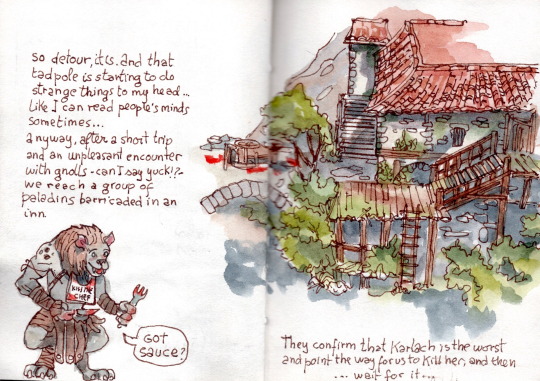 so detour, it is. and that
tadpole is starting to do
strange things to my head...
Like I can read people's minds
sometimes...
anyway, after a short trip
and an unpleasant encounter
with gnolls - can I say yuck!?-
we reach a group of
paladins barricaded in an
inn
KISS THE
CHEF
GOT
SAUCE?
They confirm that Karlach is the worst
and point the way for us to kill her, and then
... wait for it...